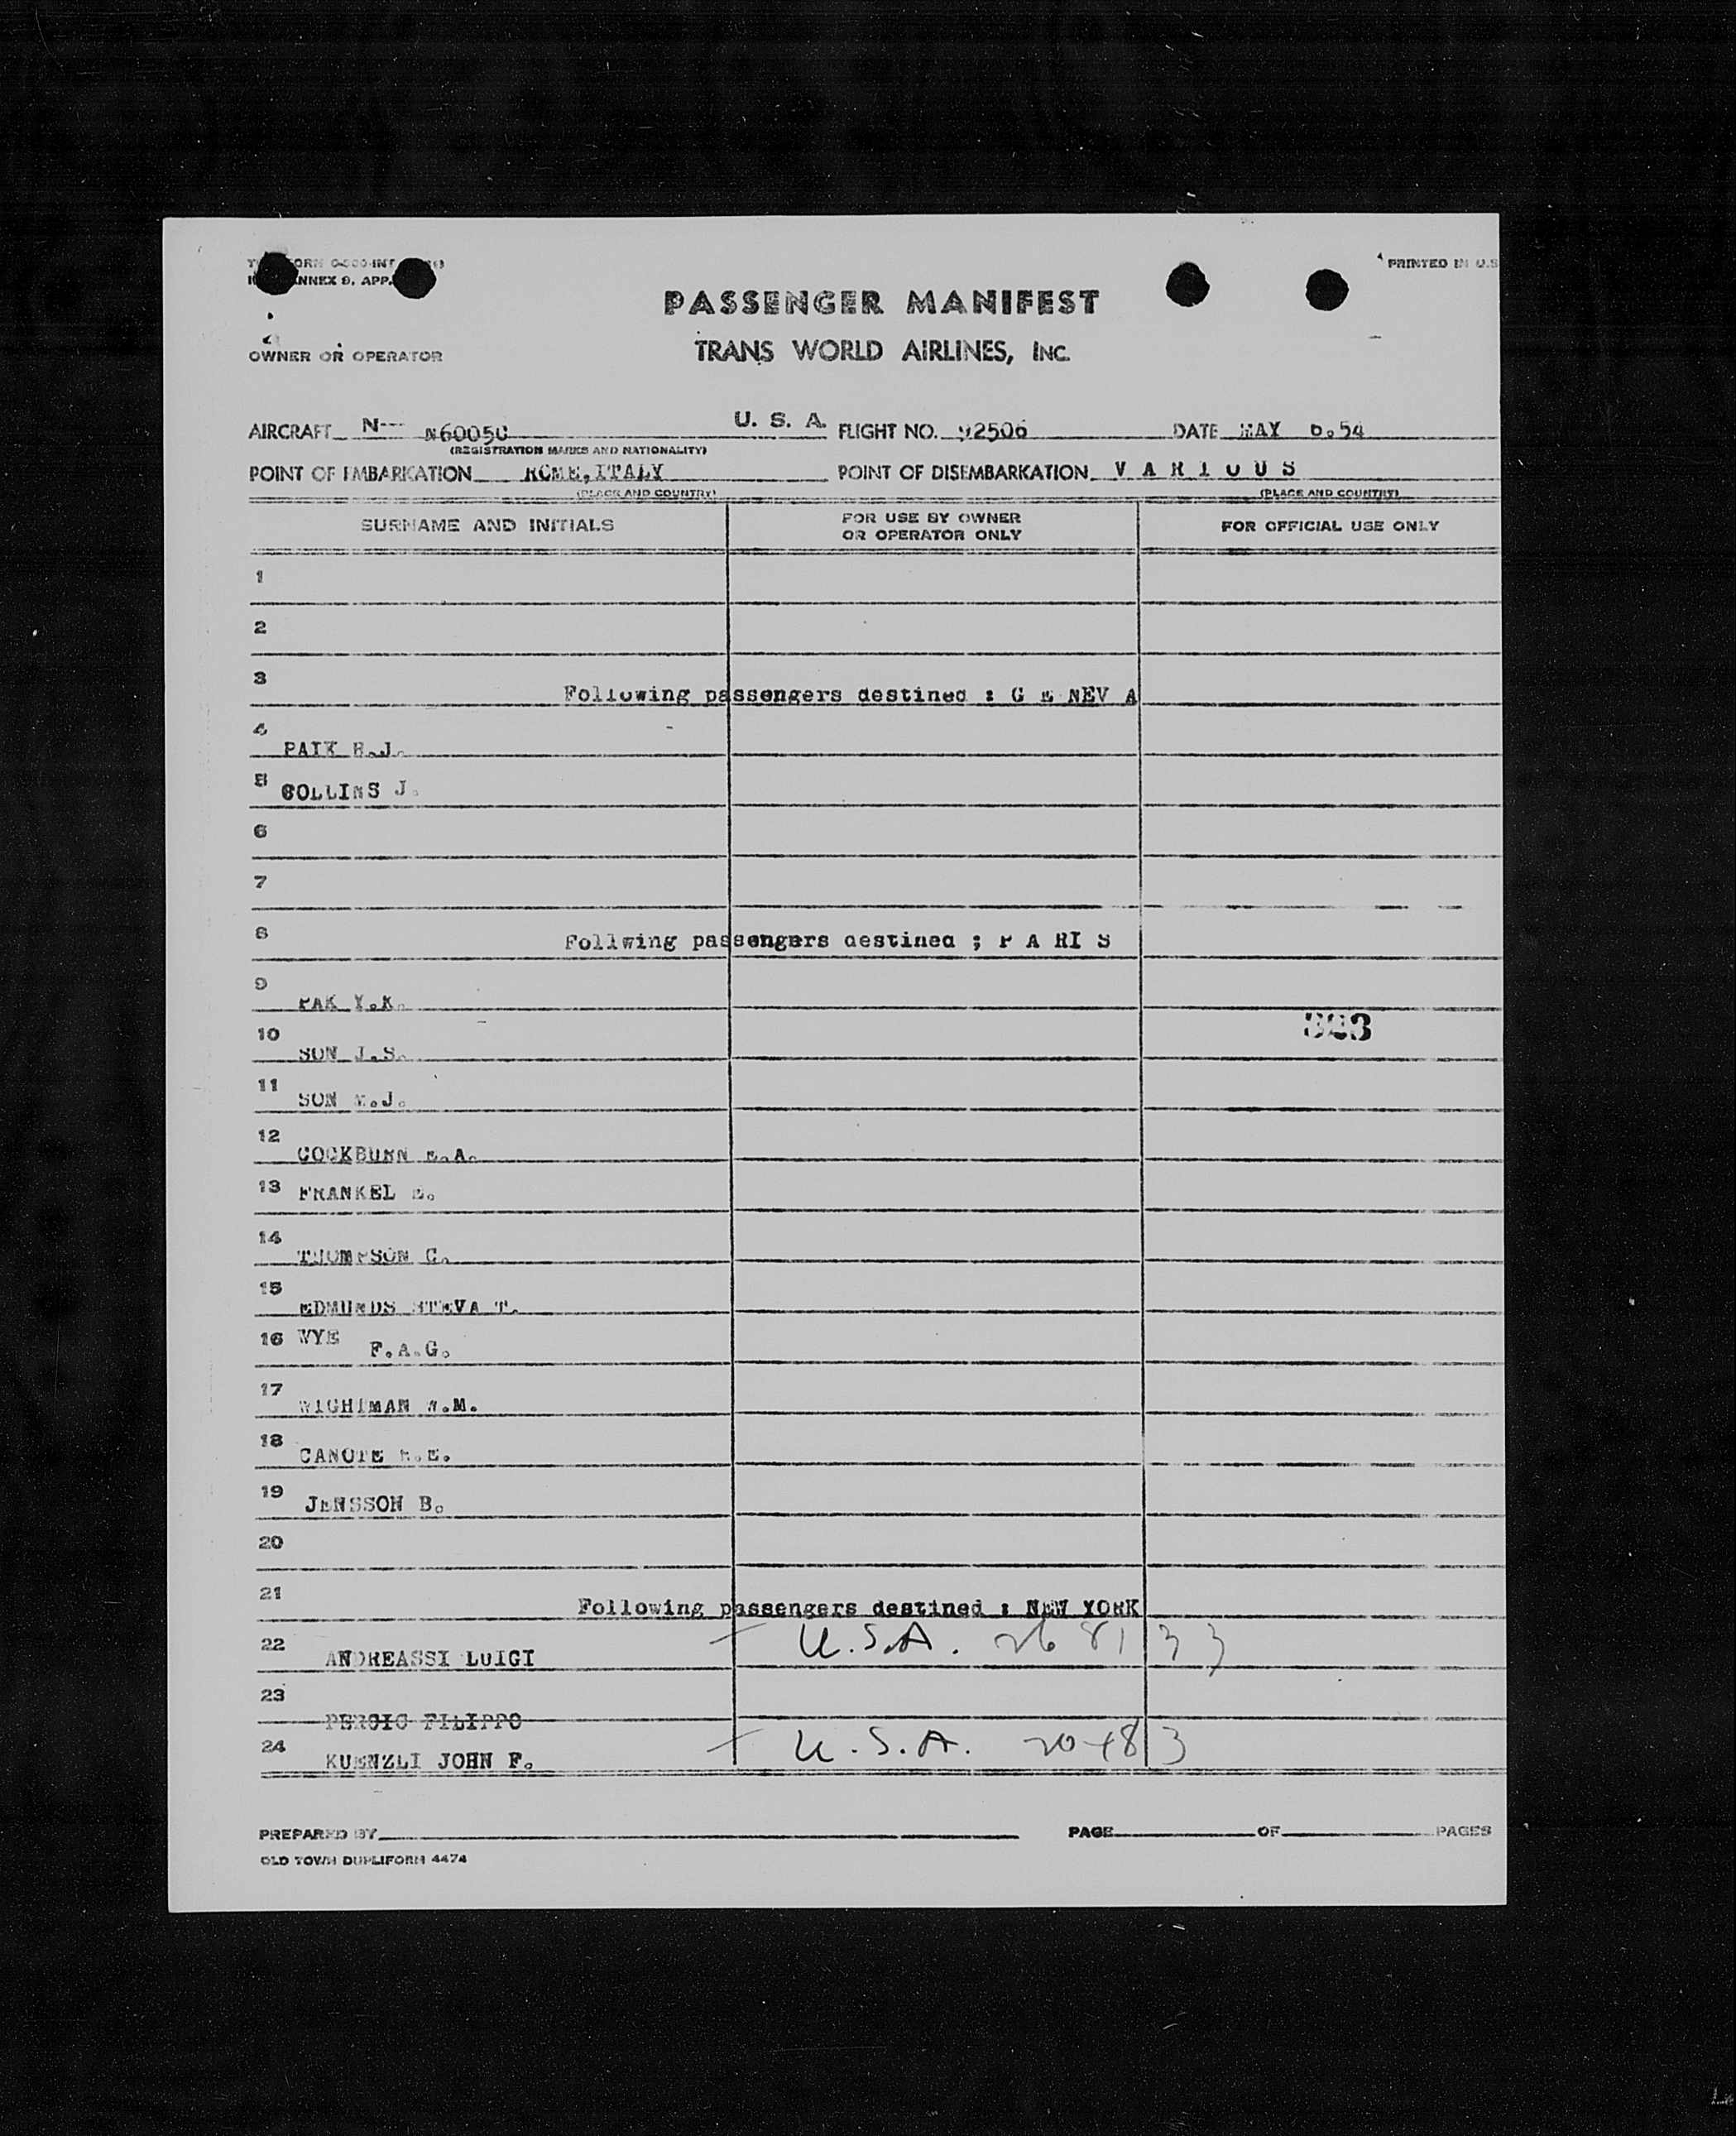 ANNEX 9, APP.
PRINTED IN U.S
PASSENGER MANIFEST
OWNER OR OPERATOR
TRANS WORLD AIRLINES, INC.
AIRCRAFT N-- N6005C U. S. A. FLIGHT NO. 92506 DATE MAY 6.54
(REGISTRATION MARKS AND NATIONALITY)
POINT OF EMBARKATION ROME, ITALY POINT OF DISEMBARKATION V A R I O U S
(PLACE AND COUNTRY) (PLACE AND COUNTRY)
SURNAME AND INITIALS FOR USE BY OWNER OR OPERATOR ONLY FOR OFFICIAL USE ONLY
1
2
3 Following passengers destined : G E NEV A
4 PAIK H.J.
5 COLLINS J.
6
7
8 Follwing passengers destined ; P A RI S
9 PAK Y.K.
10 SON J.S.
11 SON J.
12 COCKBURN A.
13 FRANKEL E.
14 THOMPSON C.
15 EDMUNDS STEVA T.
16 WYE F.A.G.
17 WIGHTMAN W.M.
18 CANOTE E.
19 JENSSON B.
20
21 Following passengers destined : NEW YORK
22 ANDREASSI LUIGI U.S.A.
23 PERGIO FILIPPO
24 KUENZLI JOHN F. U.S.A.
PREPARED BY PAGE OF PAGES
OLD TOWN DUPLIFORM 4474